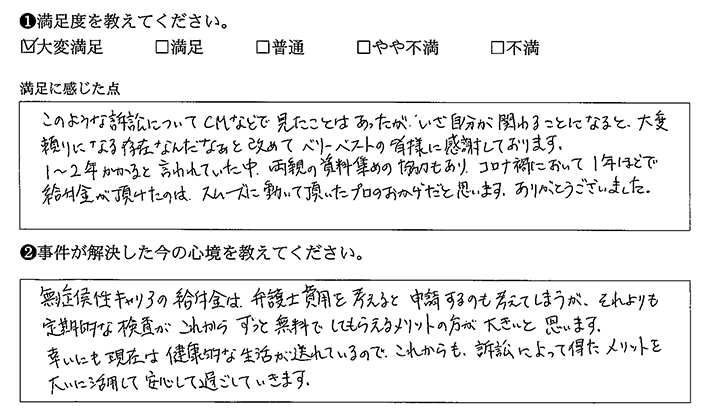 ❶満足度を教えてください。
☑大変満足 □満足 □普通 □やや不満 □不満
満足に感じた点
このような訴訟についてCMなどで見たことはあったが、いざ自分が関わることになると、大変
頼りになる存在なんだなぁと改めてベリーベストの皆様に感謝しております。
1～2年かかると言われていた中、両親の資料集めの協力もあり、コロナ禍において1年ほどで
給付金が頂けたのは、スムーズに動いて頂いたプロのおかげだと思います。ありがとうございました。
❷事件が解決した今の心境を教えてください。
無症候性キャリアの給付金は、弁護士費用を考えると申請するのも考えてしまうが、それよりも
定期的な検査がこれからずっと無料でしてもらえるメリットの方が大きいと思います。
幸いにも現在は健康的な生活が送れているので、これからも、訴訟によって得たメリットを
大いに活用して安心して過ごしていきます。